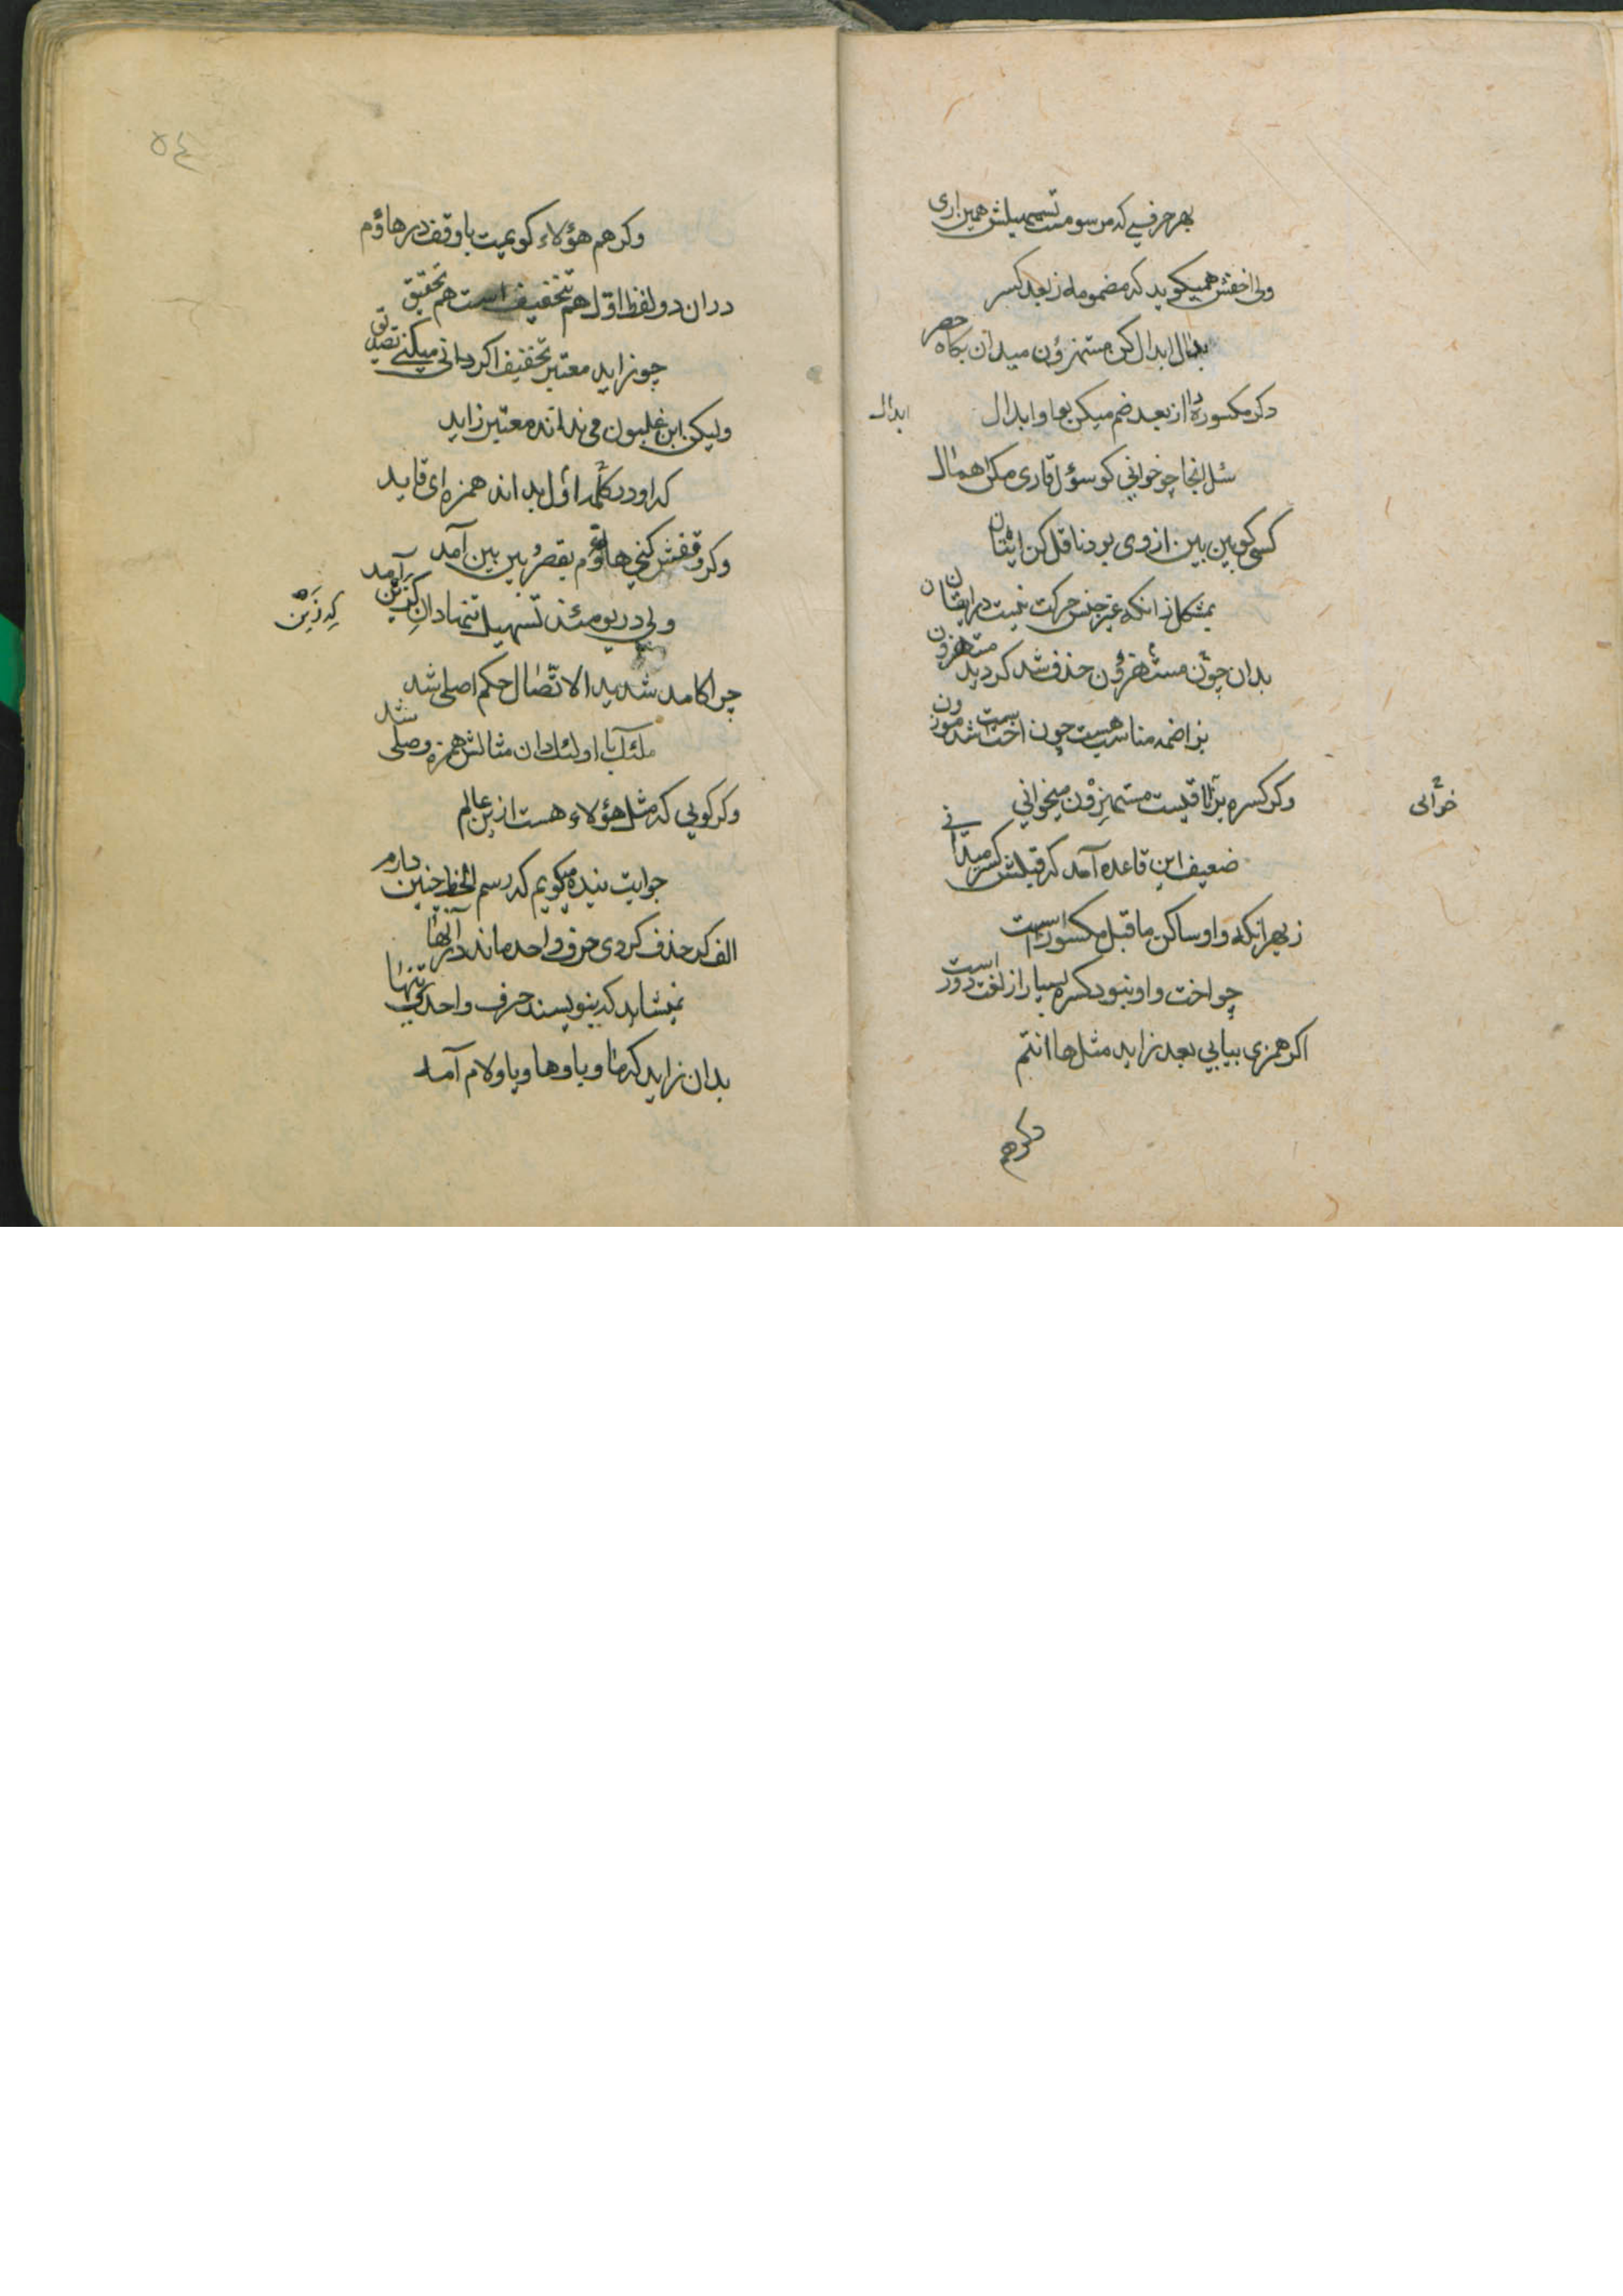 بهر حرفی که مرسومست تسهیلش همین اری
ولی اخفش همیکوید که مضمومه ز بعد کسر
ابدال کن مستهزؤن میدان بکاه حصر
دکر مکسوره را از بعد ضم میکن بواو ابدال
ابدال
سئل انجا چو خوانی کو سؤل قاری مکن اهمال
کسی کو بین بین از وی بود ناقل کن ایقان
بمشکل زانکه غیر جنس حرکت نیست در ایقان
بدان چون مستهزؤن حذف شد کردید مستهزون
بزا ضمه مناسب هست چون اخت
وکر کسره بزا باقیست مستهزؤن میخوانی
خوانی
ضعیف این قاعده آمد که قبلش کسر میدانی
ز بهر انکه واو ساکن ماقبل مکسور است
چو اخت واو نبود کسره بسیار از لغت دور است
اکر همزی بیابی بعد زاید مثل ها انتم
دکر هم
٥٤
وکر هم هؤلاء کویمت با وقف در هاؤم
دران دو لفظ اول هم تخفیف است هم تحقیق
چو زاید معتبر تخفیف اکر دانی میکنی تصدیق
ولیکن ابن غلبون می نداند معتبر زاید
که او در کلمه اول بداند همزه ای قاید
وکر وقفش کنی هاؤم بقصر بین بین آمد
ولی در یومئذ تسهیل تنها دان کزین آمد
که زین
چرا کامد شدید الاتصال حکم اصلی شد
اولئک دان مثالش همزه وصلی شد
وکر کویی که مثل هؤلاء هست ازین عالم
جوابت بنده میکویم که رسم الخط چنین دارم
الف کر حذف کردی حرف واحد ماند در آنها
نمیشاید که بنویسند حرف واحد تنها
بدان زاید که ما و با و ها و یا و لام آمد